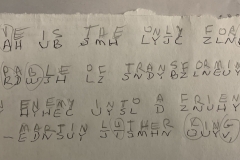 VE IS THE ONLY FOR
AH UB SMH LYJC ZLN
PABLE OF TRANSFORMIN
LZ SNDYBZLNEUY
ENEMY INTO A FRIEN
HYHEC UYSL D ZNUHY
- MARTIN LUTHER KING
- EDNSUY SMHN OUYV